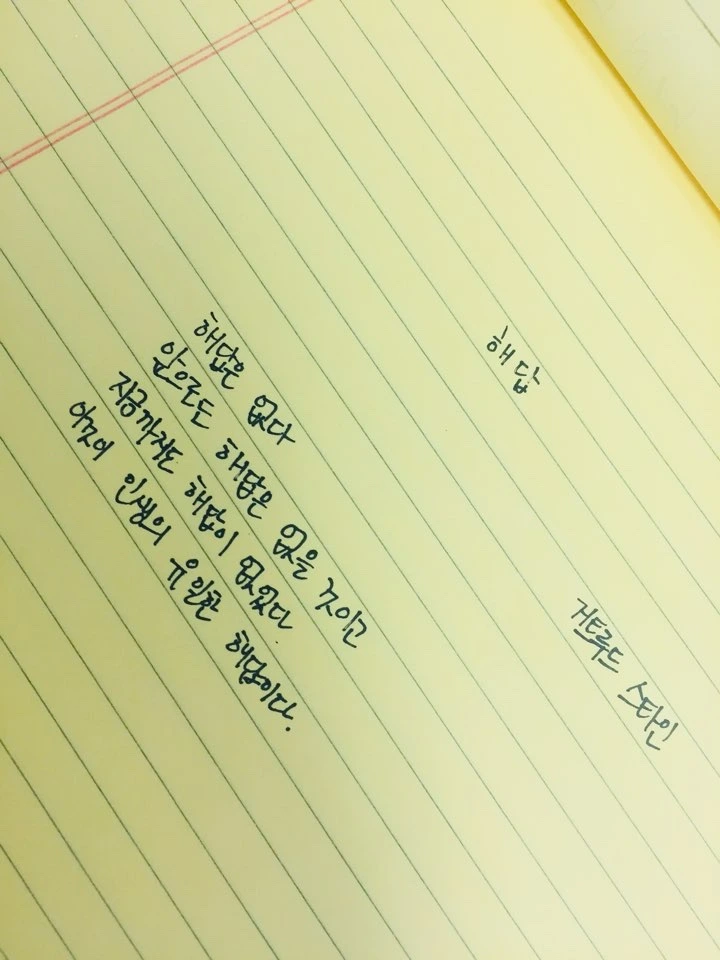 해답
거트루드 스타인
해답은 없다
앞으로도 해답은 없을 것이고
지금까지도 해답이 없었다
이것이 인생의 유일한 해답이다.